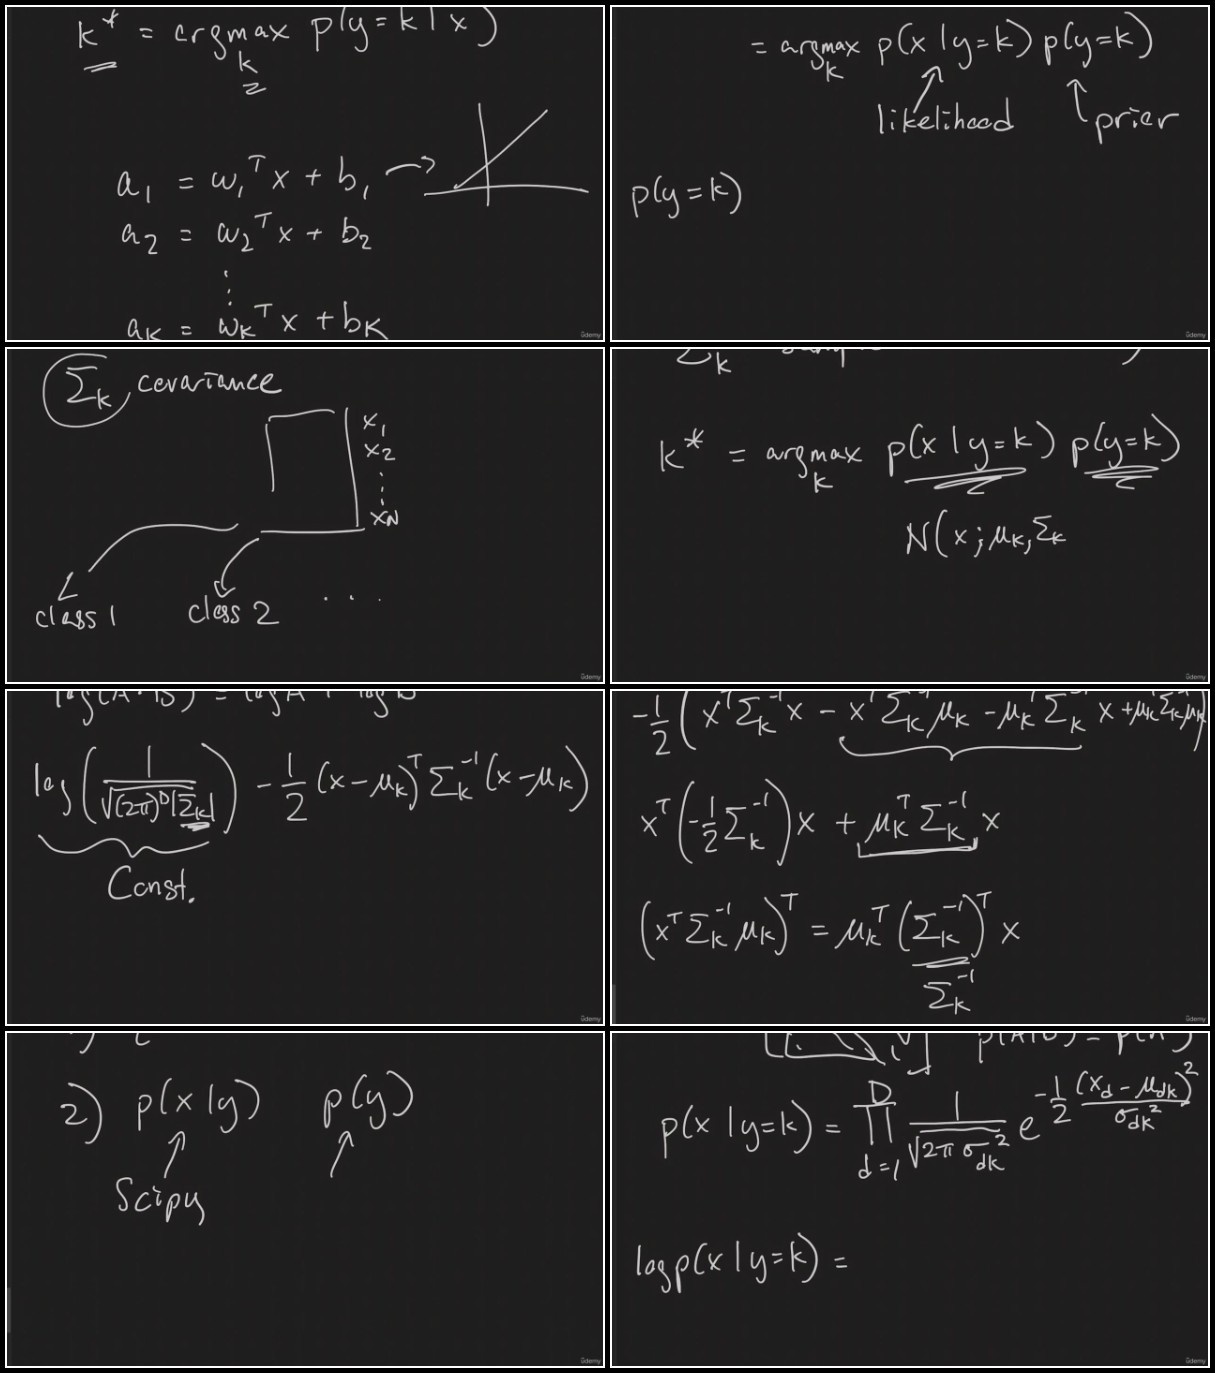 k* = argmax p(y=k|x)
k
a₁ = w₁ᵀx + b₁
a₂ = w₂ᵀx + b₂
⋮
a_K = w_Kᵀx + b_K
ûdemy
= argmax p(x|y=k) p(y=k)
k
likelihood prior
p(y=k)
ûdemy
Σ_k, covariance
x₁
x₂
⋮
x_N
class 1 class 2 ...
ûdemy
Σ_k sample
k* = argmax p(x|y=k) p(y=k)
k
N(x; μ_k, Σ_k
ûdemy
log(A·B) = log A + log B
log(1/√((2π)ᴰ|Σ_k|)) - 1/2 (x-μ_k)ᵀ Σ_k⁻¹ (x-μ_k)
Const.
ûdemy
-1/2 (xᵀΣ_k⁻¹x - xᵀΣ_k⁻¹μ_k - μ_kᵀΣ_k⁻¹x + μ_kᵀΣ_k⁻¹μ_k)
xᵀ(-1/2 Σ_k⁻¹)x + μ_kᵀΣ_k⁻¹x
(xᵀΣ_k⁻¹μ_k)ᵀ = μ_kᵀ(Σ_k⁻¹)ᵀx
Σ_k⁻¹
ûdemy
2) p(x|y) p(y)
Scipy
ûdemy
p(x|y=k) = ∏_{d=1}^{D} 1/√(2πσ_dk²) e^{-1/2 (x_d-μ_dk)²/σ_dk²}
log p(x|y=k) =
ûdemy